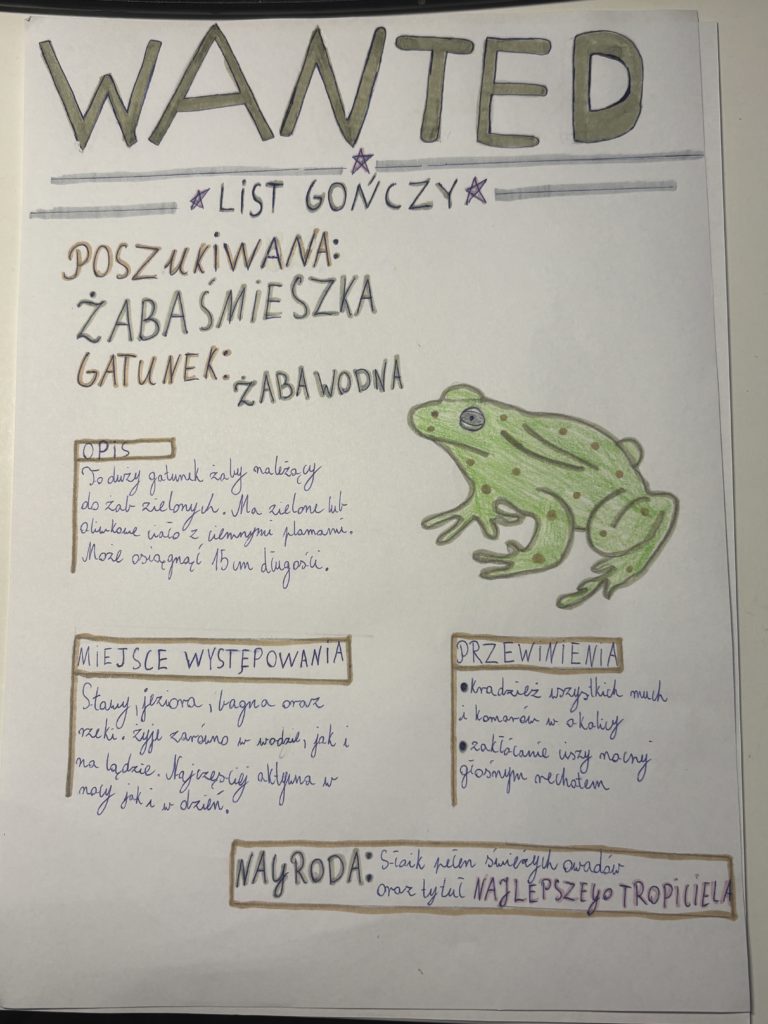 WANTED
LIST GOŃCZY
POSZUKIWANA:
ŻABA ŚMIESZKA
GATUNEK:
ŻABA WODNA
OPIS
To duży gatunek żaby należący
do żab zielonych. Ma zielone lub
oliwkowe ciało z ciemnymi plamami.
Może osiągnąć 15 cm długości.
MIEJSCE WYSTĘPOWANIA
Stawy, jeziora, bagna oraz
rzeki. Żyje zarówno w wodzie, jak i
na lądzie. Najczęściej aktywna w
nocy jak i w dzień.
PRZEWINIENIA
• kradzież wszystkich much
i komarów w okolicy
• zakłócanie ciszy nocnej
głośnym rechotem
NAGRODA: Słoik pełen świeżych owadów
oraz tytuł NAJLEPSZEGO TROPICIELA